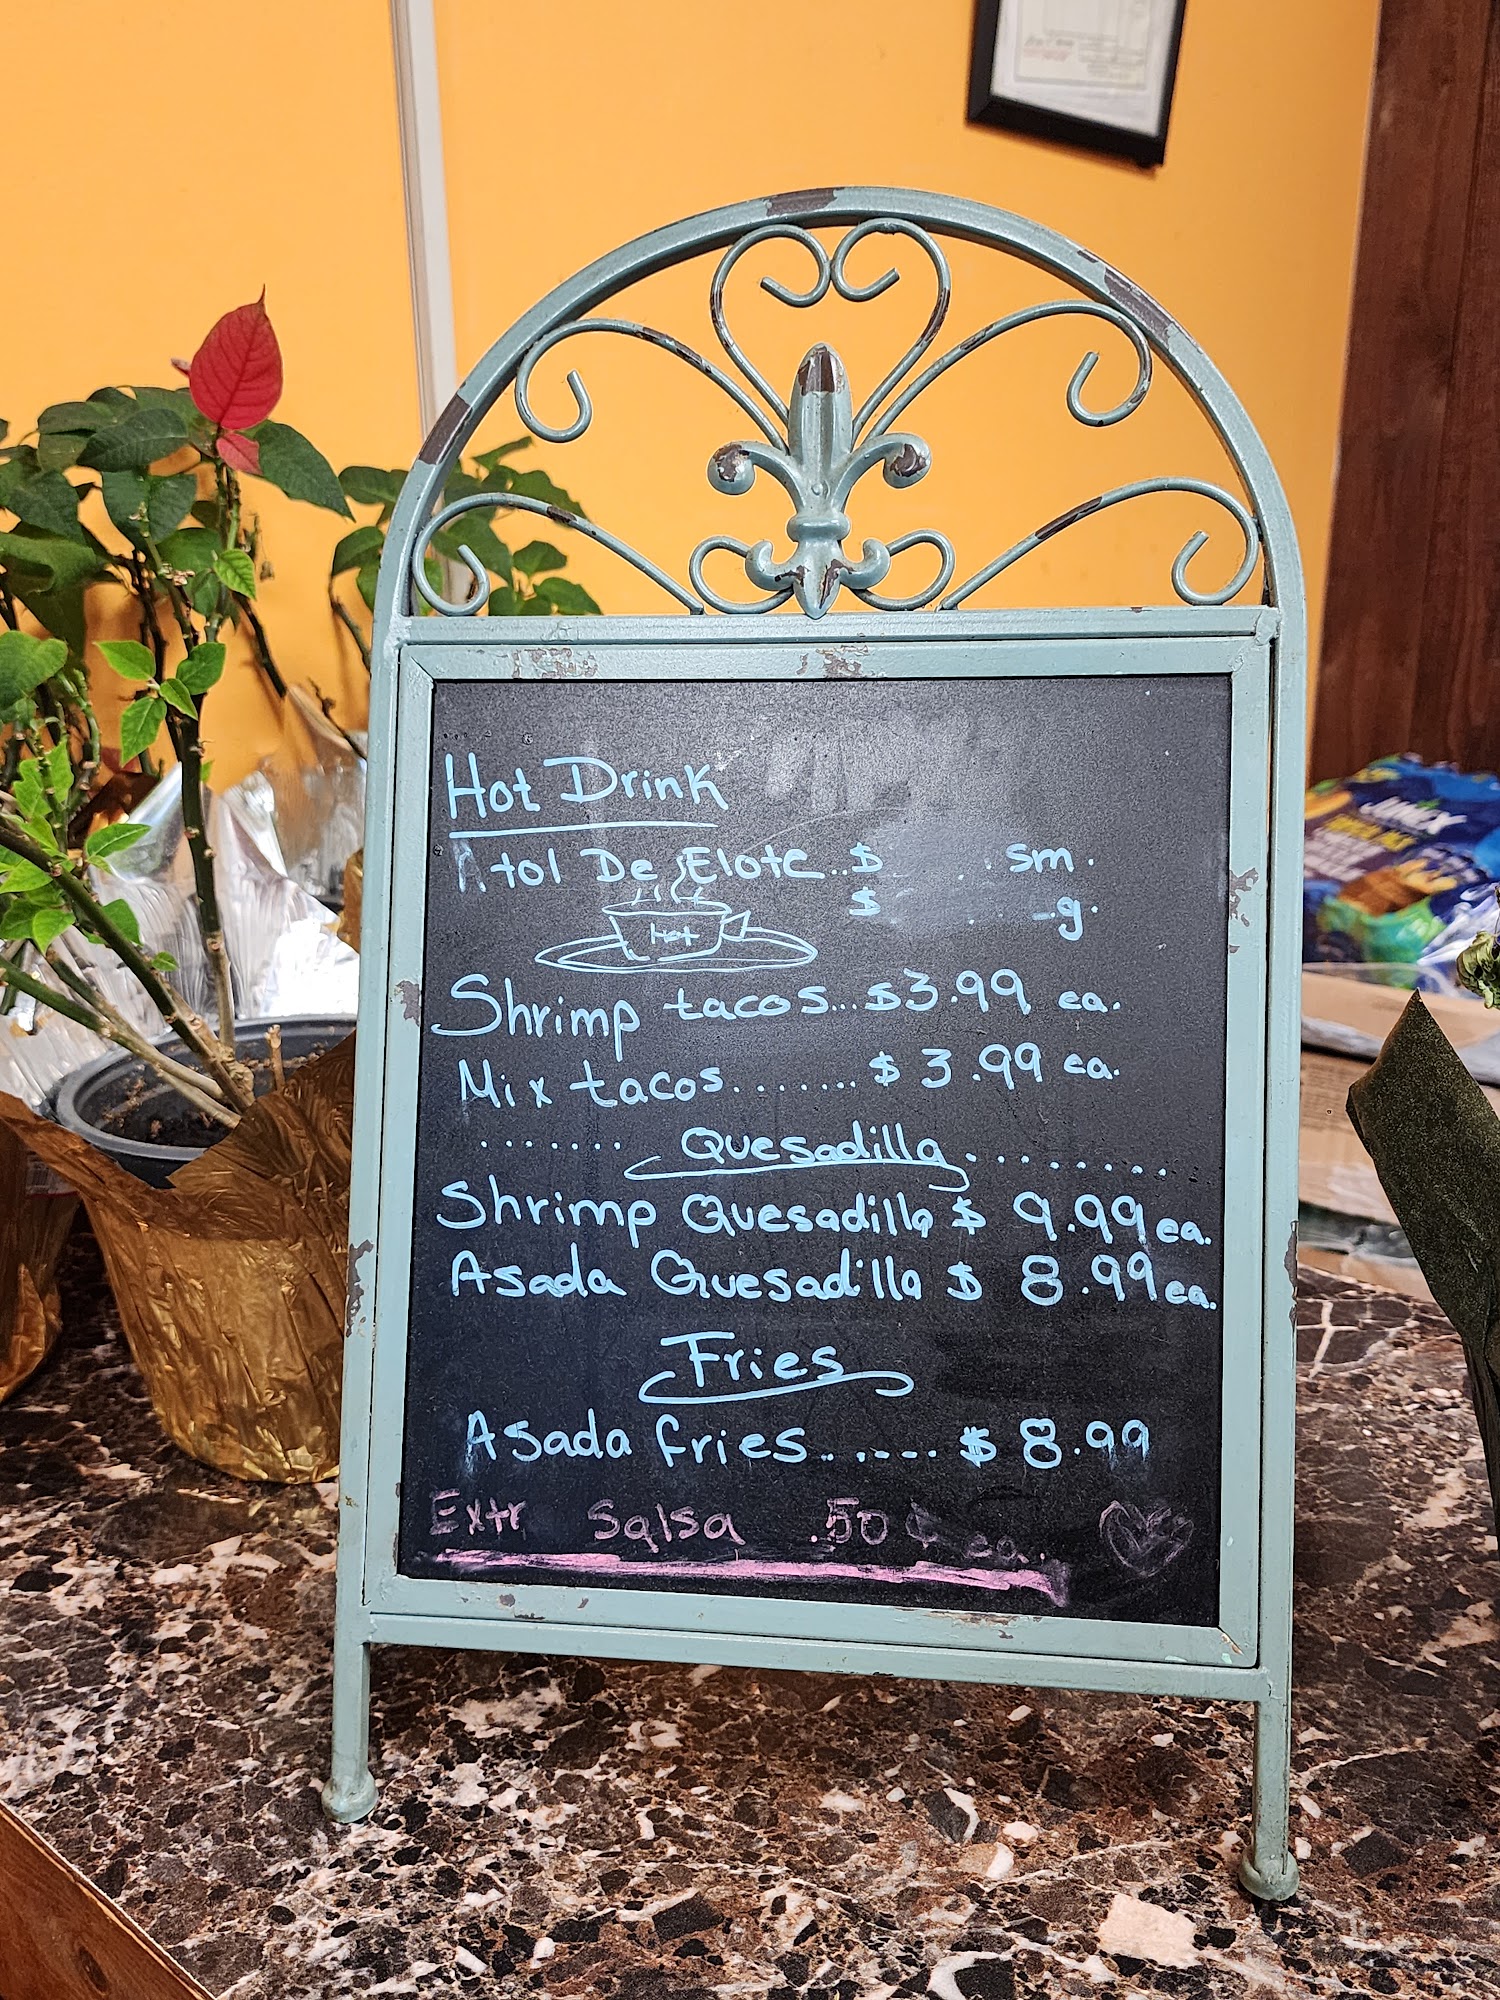 Hot Drink
Atol De Elote..$ sm.
$ g.
Hot
Shrimp tacos...$3.99 ea.
Mix tacos.......$3.99 ea.
....... Quesadilla.........
Shrimp Quesadilla $ 9.99 ea.
Asada Quesadilla $ 8.99 ea.
Fries
Asada fries.......$ 8.99
Extr Salsa .50 ¢ ea.